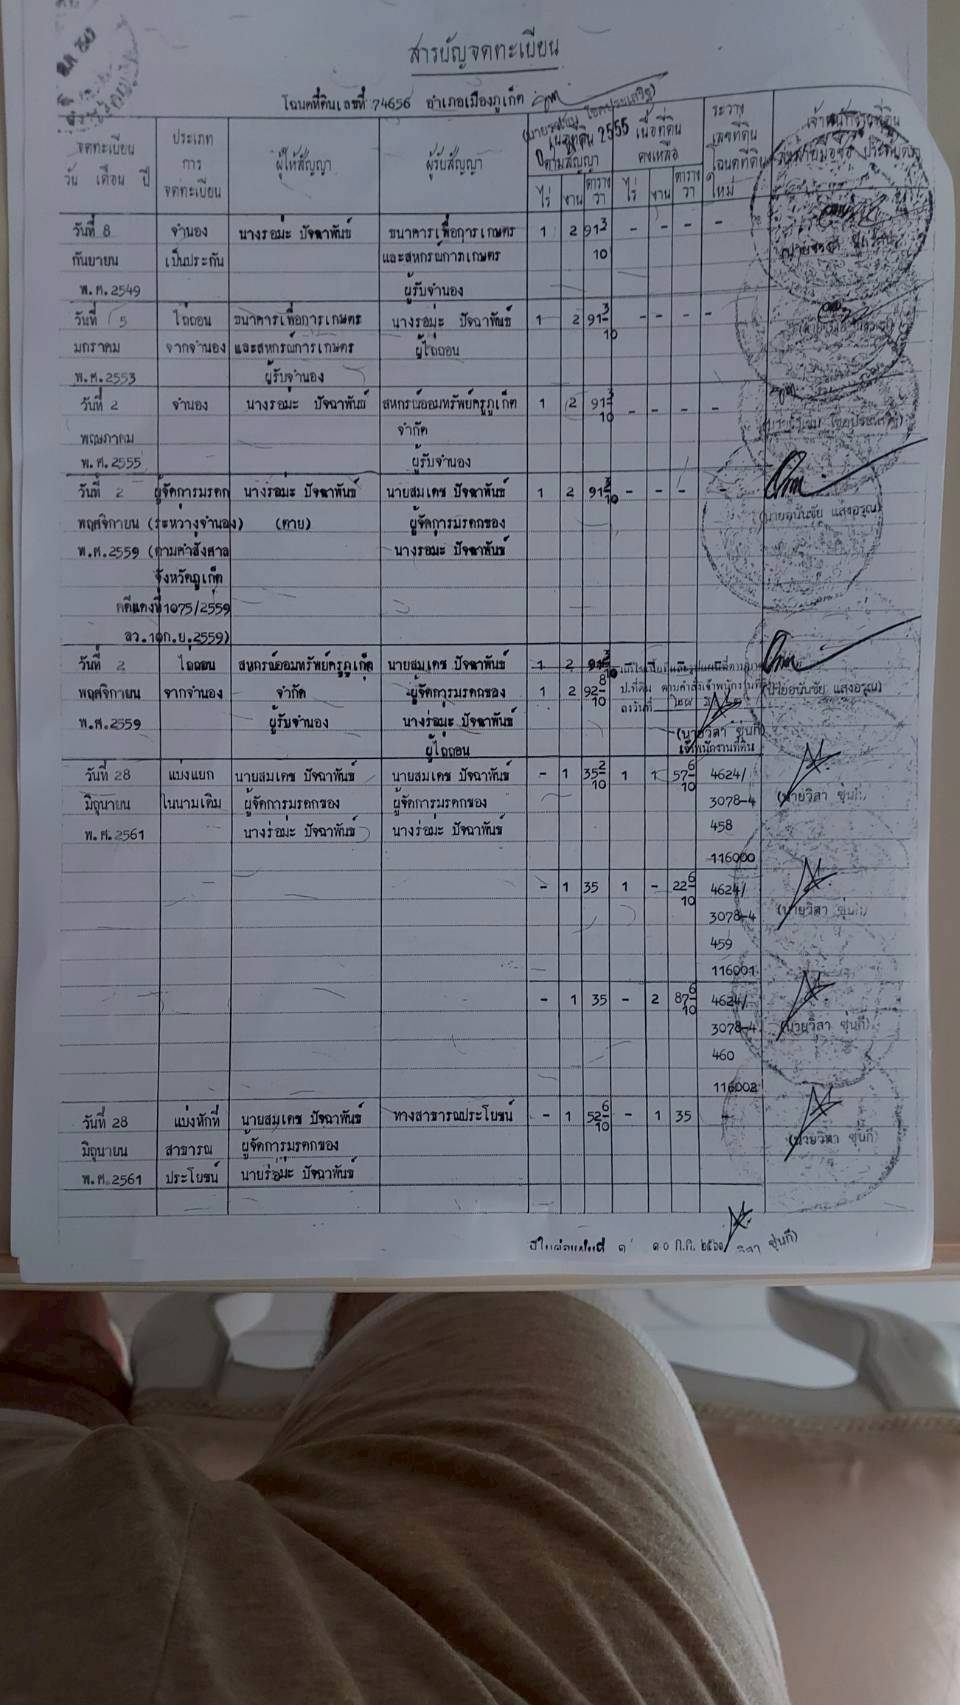 สารบัญจดทะเบียน
โฉนดที่ดินเลขที่ 74656 อำเภอเมืองภูเก็ต
จดทะเบียน
วัน เดือน ปี
ประเภท
การ
จดทะเบียน
ผู้ให้สัญญา
ผู้รับสัญญา
เนื้อที่ดิน 2555
ตามสัญญา
ไร่ งาน ตารางวา
เนื้อที่ดิน
คงเหลือ
ไร่ งาน ตารางวา
ระวาง
เลขที่ดิน
โฉนดที่ดิน
ใหม่
เจ้าพนักงานที่ดิน
วันที่ 8 จำนอง นางรอม่ะ ปัจฉาพันธ์ ธนาคารเพื่อการเกษตร 1 2 91 3/10 - - - -
กันยายน เป็นประกัน และสหกรณ์การเกษตร
พ.ศ.2549 ผู้รับจำนอง
วันที่ 5 ไถ่ถอน ธนาคารเพื่อการเกษตร นางรอม่ะ ปัจฉาพันธ์ 1 2 91 3/10 - - - -
มกราคม จากจำนอง และสหกรณ์การเกษตร ผู้ไถ่ถอน
พ.ศ.2553 ผู้รับจำนอง
วันที่ 2 จำนอง นางรอม่ะ ปัจฉาพันธ์ สหกรณ์ออมทรัพย์ครูภูเก็ต 1 2 91 3/10 - - - -
พฤษภาคม จำกัด
พ.ศ.2555 ผู้รับจำนอง
วันที่ 2 ผู้จัดการมรดก นางร่อม่ะ ปัจฉาพันธ์ นายสมเดช ปัจฉาพันธ์ 1 2 91 3/10 - - - -
พฤศจิกายน (ระหว่างจำนอง) (ตาย) ผู้จัดการมรดกของ (นายอนันชัย แสงอรุณ)
พ.ศ.2559 (ตามคำสั่งศาล นางรอม่ะ ปัจฉาพันธ์
จังหวัดภูเก็ต
คดีแดงที่ 1075/2559
ลว.10ก.ย.2559)
วันที่ 2 ไถ่ถอน สหกรณ์ออมทรัพย์ครูภูเก็ต นายสมเดช ปัจฉาพันธ์ 1 2 91 3/10
พฤศจิกายน จากจำนอง จำกัด ผู้จัดการมรดกของ 1 2 92 8/10 ป.ที่ดิน (นายอนันชัย แสงอรุณ)
พ.ศ.2559 ผู้รับจำนอง นางร่อม่ะ ปัจฉาพันธ์ ลงวันที่
ผู้ไถ่ถอน (นายวิสา ซุ่นกี)
เจ้าพนักงานที่ดิน
วันที่ 28 แบ่งแยก นายสมเดช ปัจฉาพันธ์ นายสมเดช ปัจฉาพันธ์ - 1 35 2/10 1 1 57 6/10 4624/
มิถุนายน ในนามเดิม ผู้จัดการมรดกของ ผู้จัดการมรดกของ 3078-4 (นายวิสา ซุ่นกี)
พ.ศ.2561 นางร่อม่ะ ปัจฉาพันธ์ นางร่อม่ะ ปัจฉาพันธ์ 458
116000
- 1 35 1 - 22 6/10 4624/
3078-4 (นายวิสา ซุ่นกี)
459
116001
- 1 35 - 2 87 6/10 4624/
3078-4 (นายวิสา ซุ่นกี)
460
116002
วันที่ 28 แบ่งหักที่ นายสมเดช ปัจฉาพันธ์ ทางสาธารณประโยชน์ - 1 52 6/10 - 1 35 -
มิถุนายน สาธารณ ผู้จัดการมรดกของ (นายวิสา ซุ่นกี)
พ.ศ.2561 ประโยชน์ นายร่อม่ะ ปัจฉาพันธ์